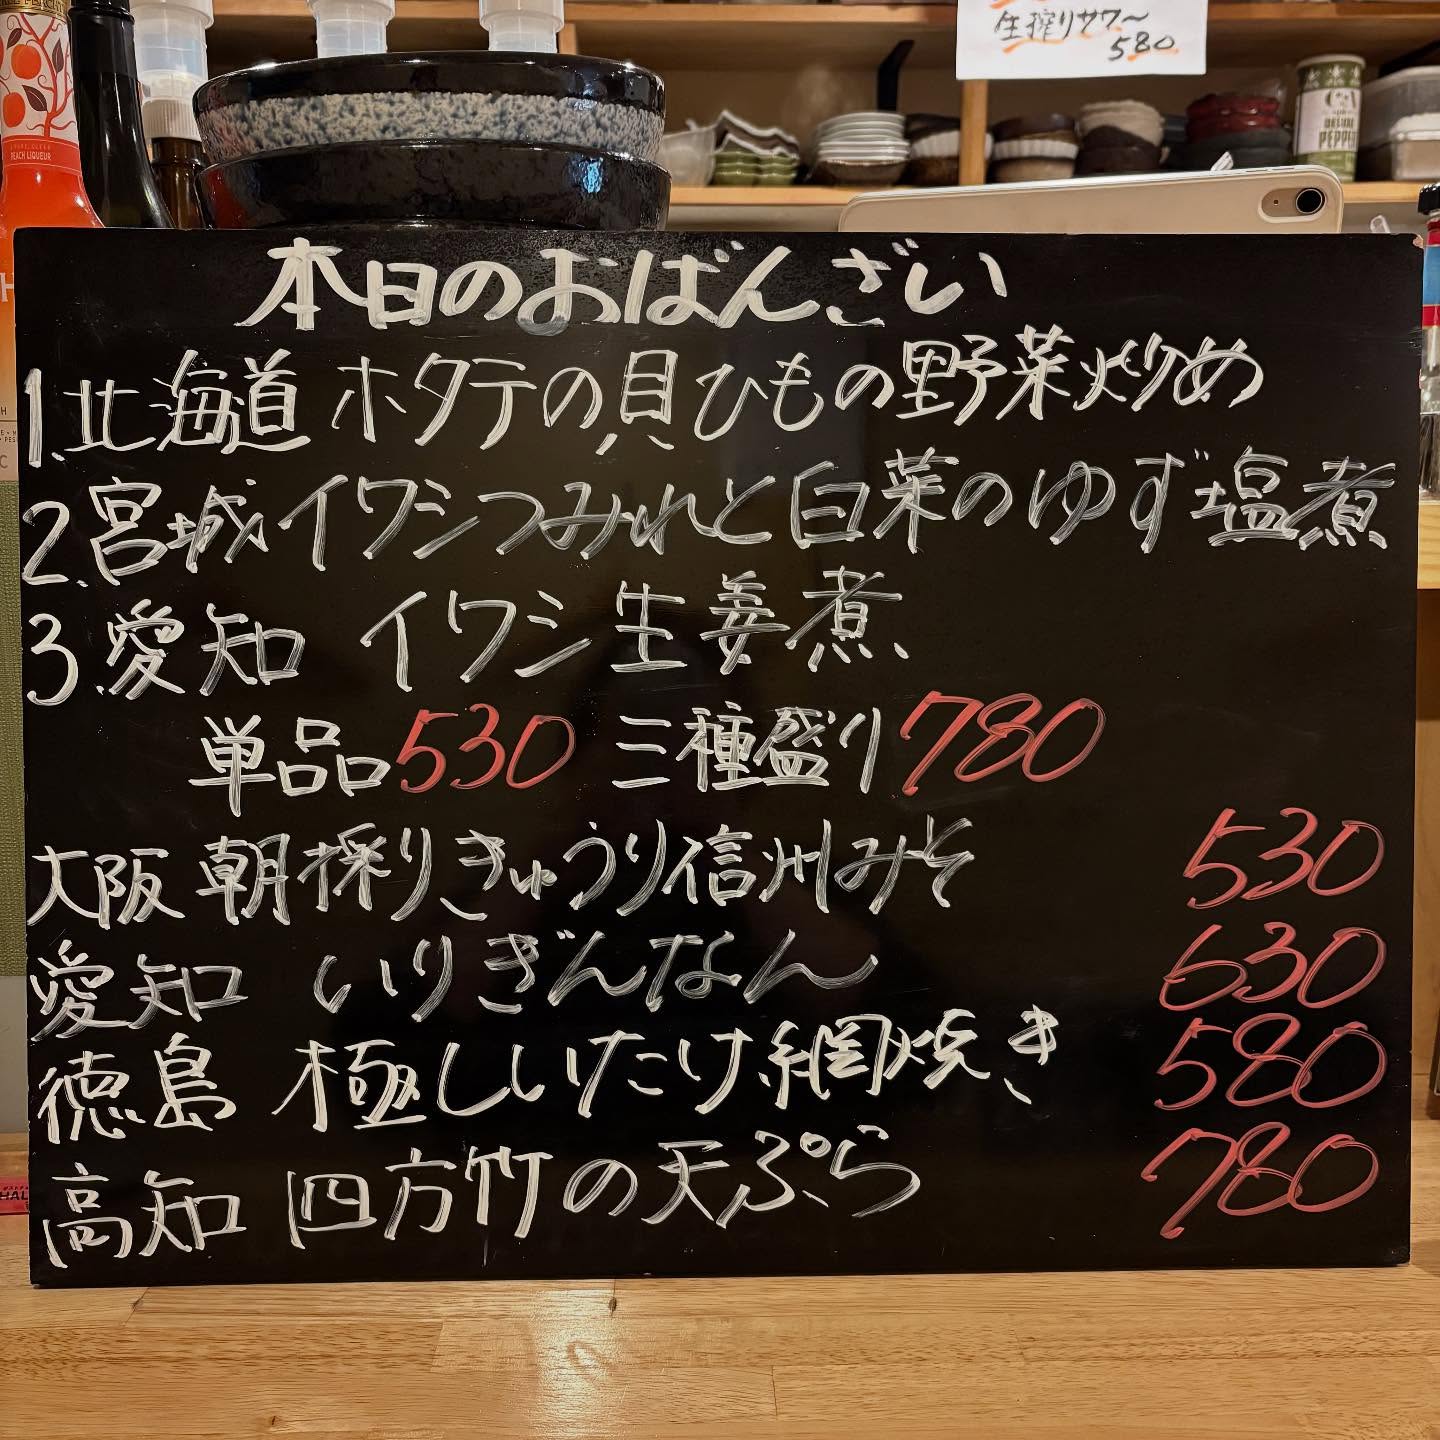 生搾りサワー
580
PEACH LIQUEUR
PEPPER
本日のおばんざい
1.北海道 ホタテの貝ひもの野菜炒め
2.宮城 イワシつみれと白菜のゆず塩煮
3.愛知 イワシ生姜煮
単品530 三種盛り780
大阪 朝採りきゅうり信州みそ 530
愛知 いりぎんなん 630
徳島 極しいたけ網焼き 580
高知 四方竹の天ぷら 780